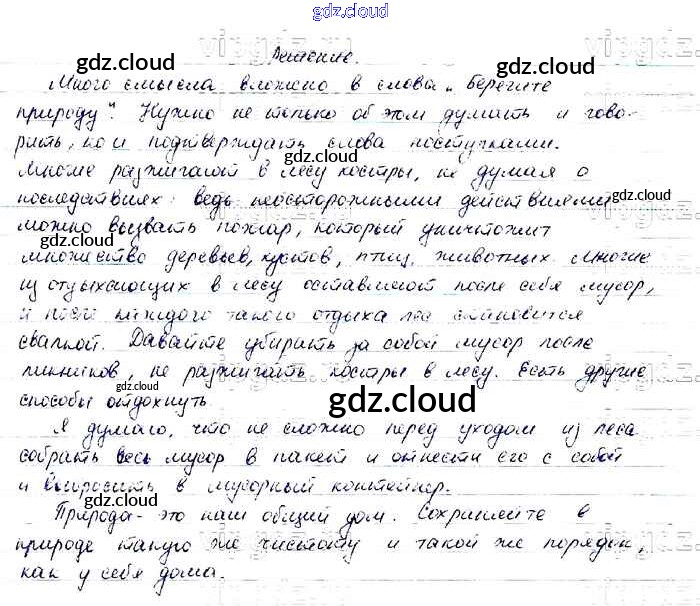 gdz.cloud
Решение.
Много смысла вложено в слова „Берегите
природу". Нужно не только об этом думать и гово-
рить, но и подтверждать слова поступками.
Многие разжигают в лесу костры, не думая о
последствиях: ведь неосторожными действиями
можно вызвать пожар, который уничтожит
множество деревьев, кустов, птиц, животных. Многие
из отдыхающих в лесу оставляют после себя мусор,
и после каждого такого отдыха лес становится
свалкой. Давайте убирать за собой мусор после
пикников, не разжигать костры в лесу. Есть другие
способы отдохнуть.
Я думаю, что не сложно перед уходом из леса
собрать весь мусор в пакет и отнести его с собой
и выбросить в мусорный контейнер.
Природа - это наш общий дом. Сохраняйте в
природе такую же чистоту и такой же порядок,
как у себя дома.